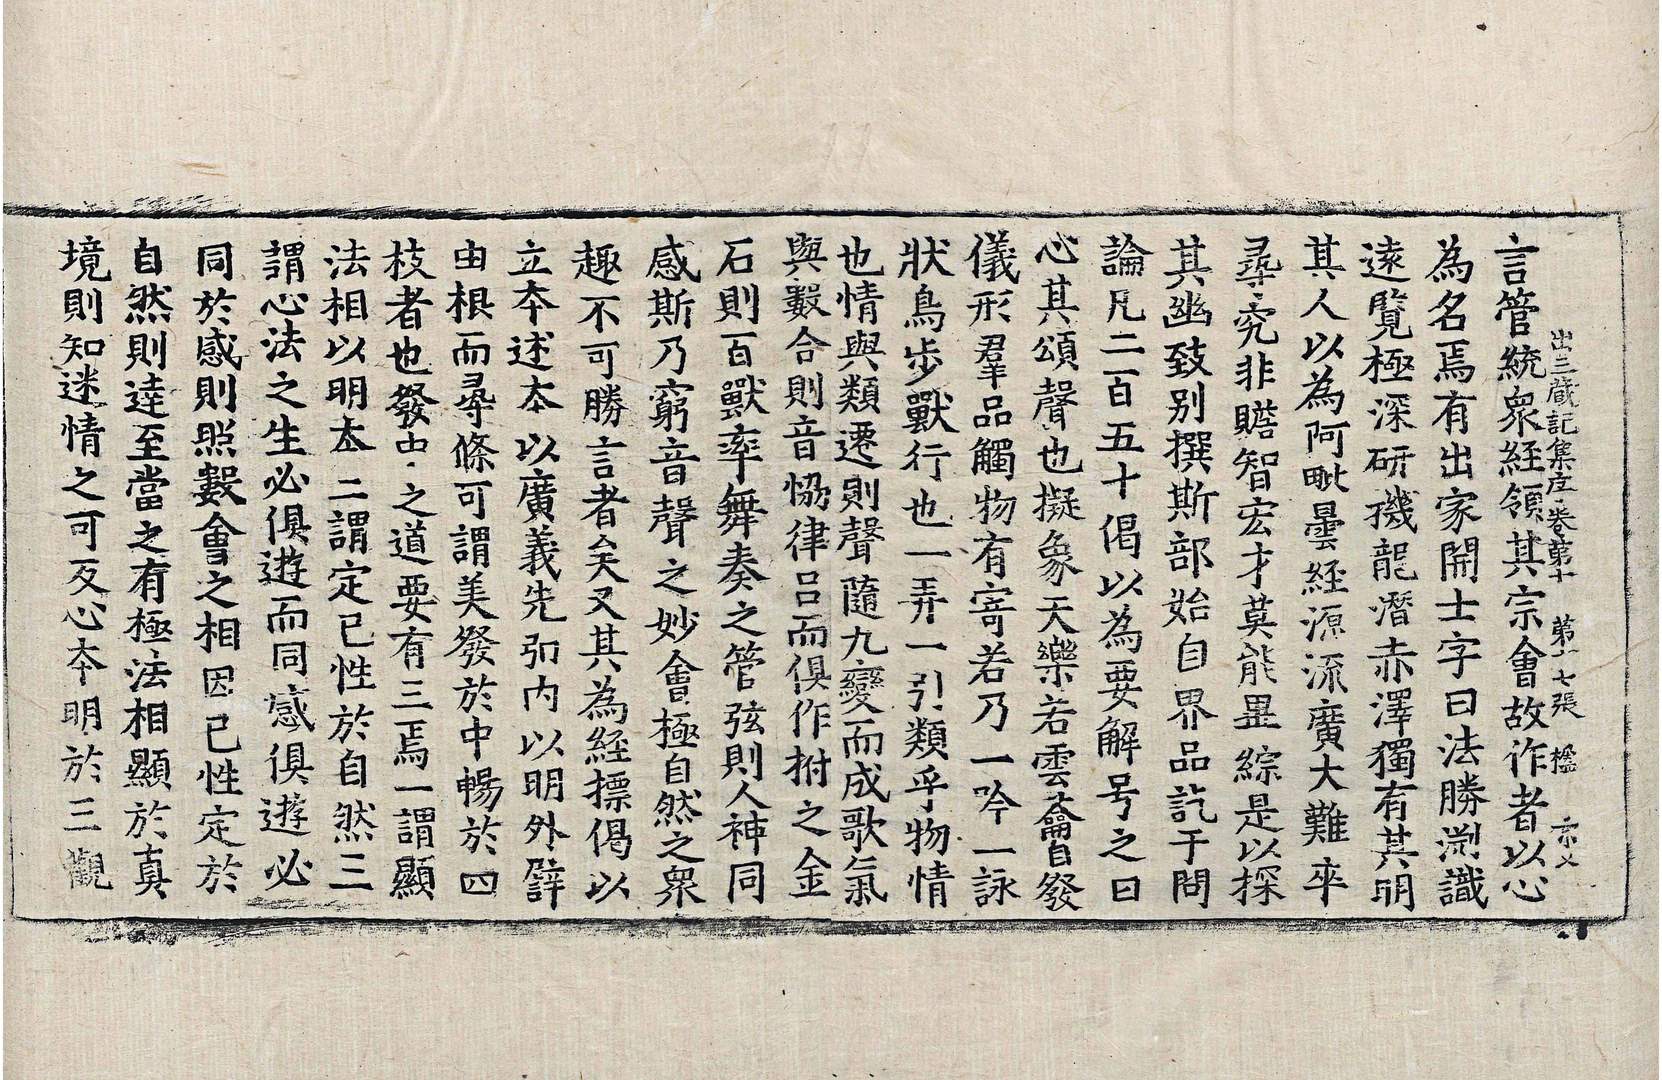 出三藏記集序卷第十 第十七張 楹
言管統衆經領其宗會故作者以心
為名焉有出家開士字曰法勝淵識
遠覽極深研機龍潛赤澤獨有其明
其人以為阿毗曇經源流廣大難卒
尋究非贍智宏才莫能畢綜是以探
其幽致别撰斯部始自界品訖于問
論凡二百五十偈以為要解号之曰
心其頌聲也擬象天樂若雲籥自發
儀形羣品觸物有寄若乃一吟一詠
狀鳥步獸行也一弄一引類乎物情
也情與類遷則聲隨九變而成歌氣
與數合則音恊律吕而俱作拊之金
石則百獸率舞奏之管弦則人神同
感斯乃窮音聲之妙會極自然之衆
趣不可勝言者矣又其為經摽偈以
立本述本以廣義先弘内以明外譬
由根而尋條可謂美發於中暢於四
枝者也發中之道要有三焉一謂顯
法相以明本二謂定已性於自然三
謂心法之生必俱遊而同感俱遊必
同於感則照數會之相因已性定於
自然則達至當之有極法相顯於真
境則知迷情之可反心本明於三觀